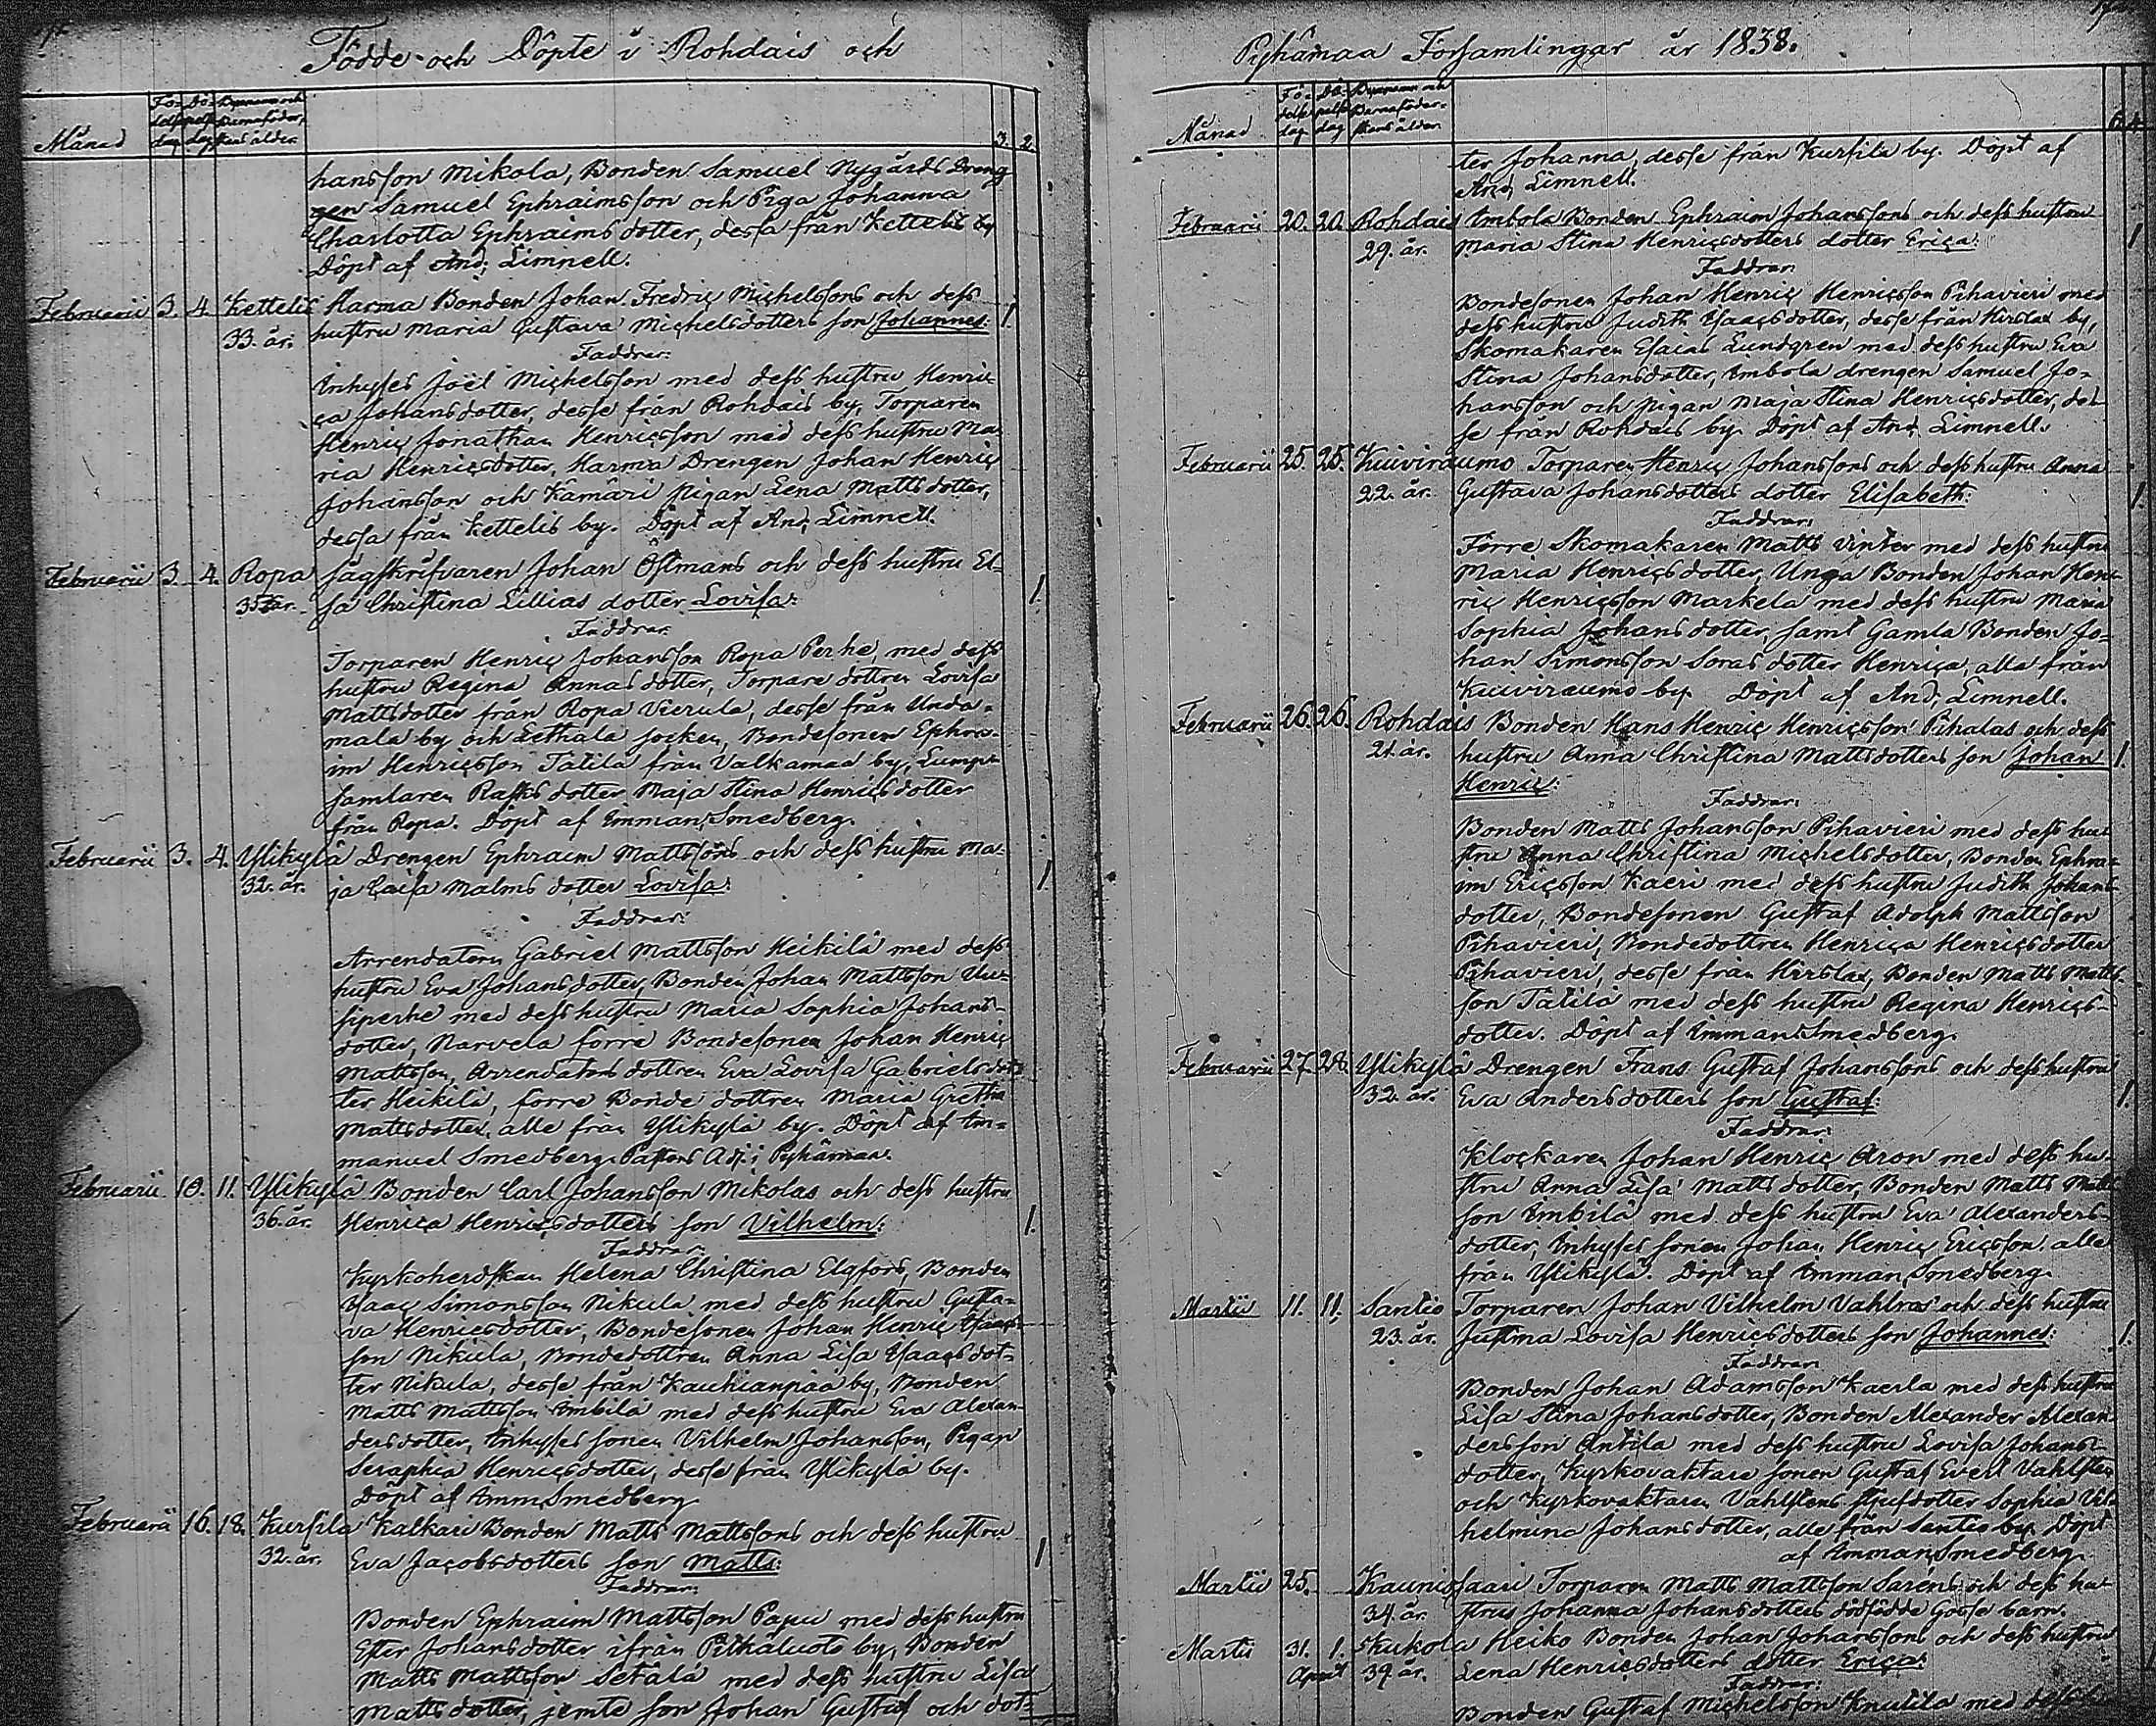 Födde och Döpte i Rohdais och
Månad
Fö- delse dag
Dö- pelse dag
Bynamn och Barnaföder- skans ålder
3. 2.
hansson Mikola, Bonden Samuel Nygårds Dreng
gen Samuel Ephraimsson och Piga Johanna
Charlotta Ephraims dotter, dessa från Kettelis by
Döpt af And; Limnell.
Februarii 3. 4. Kettelis Karma Bonden Johan Fredric Michelssons och dess 1.
33. år. hustru Maria Gustava Michelsdotters son Johannes:
Faddrar:
Inhyses Joël Michelsson med dess hustru Henri-
ca Johansdotter, desse från Rohdais by, Torparen
Henric Jonathan Henricsson med dess hustru Ma-
ria Henricsdotter, Karma Drengen Johan Henric
Johansson och Kämäri pigan Lena Mattsdotter,
dessa från Kettelis by. Döpt af And; Limnell.
Februarii 3. 4. Ropa Sågskrifvaren Johan Östmans och dess hustru El-
år. sa Christina Lillias dotter Lovisa: 1.
Faddrar:
Torparen Henric Johansson Ropa Perhe, med dess
hustru Regina Annasdotter, Torpare dottren Lovisa
Mattsdotter från Ropa Vierula, desse från Unda-
mala by och Lethala socken, Bondesonen Ephra-
im Henricsson Tätilä från Valkamaa by, Lump-
samlaren Rasks dotter Maja Stina Henricsdotter
från Ropa. Döpt af Imman; Smedberg.
Februarii 3. 4. Ylikylä Drengen Ephraim Mattssons och dess hustru Ma- 1.
32. år. ja Caisa Malms dotter Lovisa:
Faddrar:
Arrendatorn Gabriel Mattsson Heikilä med dess
hustru Eva Johansdotter, Bonden Johan Mattsson Uu-
siperhe med dess hustru Maria Sophia Johans-
dotter, Narvela förre Bondesonen Johan Henric
Mattsson, Arrendators dottren Eva Lovisa Gabrielsdot-
ter Heikilä, förre Bonde dottren Maria Gretha
Mattsdotter, alle från Ylikylä by. Döpt af Im-
manuel Smedberg, Pastors Adj: i Pyhämaa.
Februarii 10. 11. Ylikylä Bonden Carl Johansson Mikolas och dess hustru
36. år. Henrica Henricsdotters son Vilhelm: 1.
Faddrar:
Kyrkoherdskan Helena Christina Elgfors, Bonden
Isaac Simonsson Nikula med dess hustru Gusta-
va Henricsdotter, Bondesonen Johan Henric Isaacs-
son Nikula, Bondedottren Anna Lisa Isaacsdot-
ter Nikula, desse från Kauhianpää by, Bonden
Matts Mattsson Imbilä med dess hustru Eva Alexan-
dersdotter, Inhyses sonen Vilhelm Johansson, Pigan
Seraphia Henricsdotter, desse från Ylikylä by.
Döpt af Imm; Smedberg
Februarii 16. 18. Kursila Kalkari Bonden Matts Mattssons och dess hustru
32. år. Eva Jacobsdotters son Matts: 1
Faddrar:
Bonden Ephraim Mattsson Papu med dess hustru
Ester Johansdotter ifrån Pitkäluoto by, Bonden
Matts Mattsson Setälä med dess hustru Lisa
Mattsdotter, jemte son Johan Gustaf och dot-
Pyhämaa Församlingar år 1838.
Månad
Fö- delse dag
Dö- pelse dag
Bynamn och Barnaföder- skans ålder
6. 4.
ter Johanna, desse från Kursila by. Döpt af
And; Limnell.
Februarii 20. 20. Rohdais Imbola Bonden Ephraim Johanssons och dess hustru
29. år. Maria Stina Henricsdotters dotter Erica: 1
Faddrar:
Bondesonen Johan Henric Henricsson Pihavieri med
dess hustru Judith Isaacsdotter, desse från Hirslax by,
Skomakaren Esaias Lundgren med dess hustru Eva
Stina Johansdotter, Imbola drengen Samuel Jo-
hansson och pigan Maja Stina Henricsdotter, des-
se från Rohdais by. Döpt af And; Limnell.
Februarii 25. 25. Kuiviraumo Torparen Henric Johanssons och dess hustru Anna
22. år. Gustava Johansdotters dotter Elisabeth: 1.
Faddrar:
Förre Skomakaren Matts Vinter med dess hustru
Maria Henricsdotter, Unga Bonden Johan Hen-
ric Henricsson Markela med dess hustru Maria
Sophia Johansdotter, samt Gamla Bonden Jo-
han Simonsson Soras dotter Henrica, alla från
Kuiviraumo by. Döpt af And; Limnell.
Februarii 26. 26. Rohdais Bonden Hans Henric Henricsson Pihalas och dess
21. år. hustru Anna Christina Mattsdotters son Johan 1.
Henric:
Faddrar:
Bonden Matts Johansson Pihavieri med dess hu-
stru Anna Christina Michelsdotter, Bonden Ephra-
im Ericsson Kaeri med dess hustru Judith Johans
dotter, Bondesonen Gustaf Adolph Mattsson
Pihavieri, Bondedottren Henrica Henricsdotter
Pihavieri, desse från Hirslax, Bonden Matts Matts-
son Tätilä med dess hustru Regina Henrics-
dotter. Döpt af Imman; Smedberg.
Februarii 27. 28. Ylikylä Drengen Frans Gustaf Johanssons och dess hustru
32. år. Eva Andersdotters son Gustaf: 1.
Faddrar:
Klockaren Johan Henric Aron med dess hu-
stru Anna Lisa Mattsdotter, Bonden Matts Matts
son Imbilä med dess hustru Eva Alexanders-
dotter, Inhyses sonen Johan Henric Ericsson. alle
från Ylikylä. Döpt af Imman; Smedberg.
Martii 11. 11. Santio Torparen Johan Vilhelm Vahlros och dess hustru
23. år. Justina Lovisa Henricsdotters son Johannes: 1.
Faddrar:
Bonden Johan Adamsson Kaerla med dess hustru
Lisa Stina Johansdotter, Bonden Alexander Alexan-
dersson Antila med dess hustru Lovisa Johans-
dotter, Kyrkovaktare sonen Gustaf Evert Vahlsten
och Kyrkovaktaren Vahlstens stjufdotter Sophia Vil-
helmina Johansdotter, alle från Santio by. Döpt
af Imman; Smedberg.
Martii 25. Kaunissaari Torparen Matts Mattsson Saréns och dess hu-
34. år. strus Johanna Johansdotters dödfödde Gosse barn.
Martii 31. 1. Kukola Heiko Bonden Johan Johanssons och dess hustru
April 39. år. Lena Henricsdotters dotter Erica:
Faddrar:
Bonden Gustaf Michelsson Knutila med dess